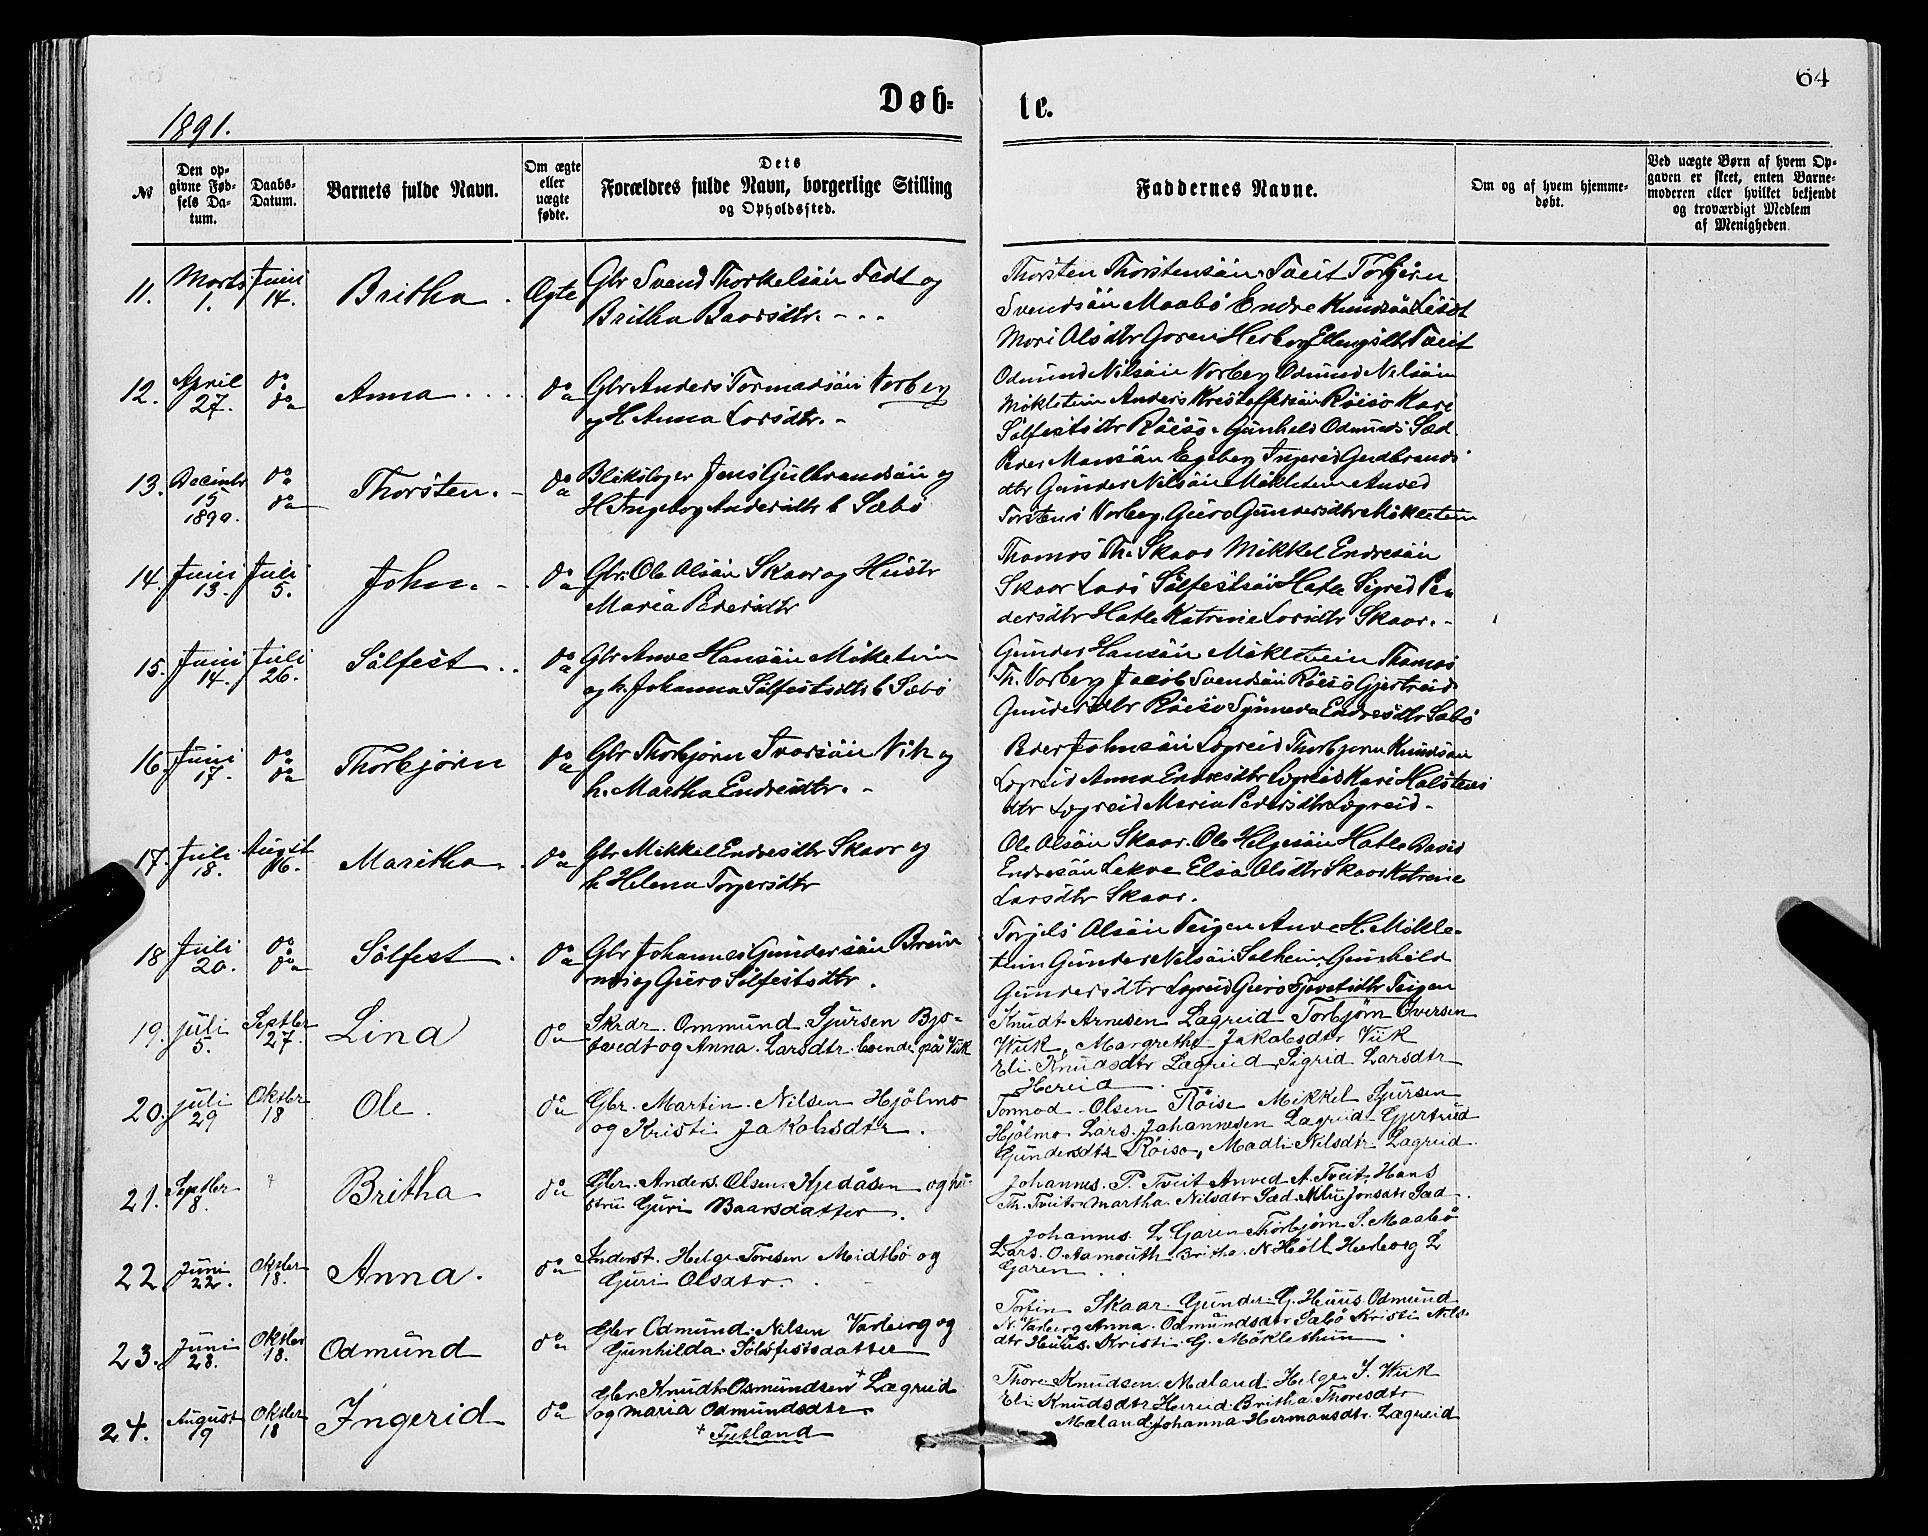 64
Døb- te.
1891.
№
Den op-
givne Fød-
sels Da-
tum.
Daabs-
Datum.
Barnets fulde Navn.
Om ægte
eller
uægte
fødte.
Dets
Forældres fulde Navn, borgerlige Stilling
og Opholdssted.
Faddernes Navne.
Om og af hvem hjemme-
døbt.
Ved uægte Børn af hvem Op-
gaven er skeet, enten Barne-
moderen eller hvilket bekjendt
og troværdigt Medlem
af Menigheden.
11. Marts 1. Juni 14. Britha. Ægte
Gbr Svend Thorkelsön Fedt og
Britha Baarsdtr.
Thorsten Thorstensön Tveit Torbjörn
Svendsön Maabö Endre Knudsön
Mari Olsdtr Garen Herborg Ellingsdtr Tveit
12. April 27. do do Anna do
Gbr Anders Tormodsön Vorberg
og H Anna Larsdtr.
Odmund Nilsön Vorberg Odmund Nilsön
Mökletun Anders Kristoffersön Röisö Kari
Sölfestsdtr Röisö. Gunhild Odmunds Sæd
13. Decembr 15 1890. do do Thorsten. do
Blikslager Jens Gulbrandsön og
H Ingeborg Andersdtr b Sæbö
Peder Monsön Egeberg Ingerid Gudbrands
dtr Gunder Nilsön Mökletun Anved
Torstens Vorberg. Guro Gundersdtr Mökletun
14. Juni 13. Juli 5. John. do
Gbr. Ole Olsön Skaar og Hustr
Maria Pedersdtr
Thomas Th. Skaar Mikkel Endresön
Skaar Lars Sölfestsön Hatle Sigrid Pe
dersdtr Hatle Katrine Larsdtr Skaar.
15. Juni 14. Juli 26. Sölfest do
Gbr Anve Hansön Mökletun
og h. Johanna Sölfestsdtr b Sæbö
Gunder Hansön Mökletun Thomas
Th. Vorberg Jacob Svendsön Röisö Gjertreid
Gundersdtr Röisö Synneva Endresdtr Sæbö
16. Juni 17. do do Thorbjörn do
Gbr Thorbjörn Ivarsön Vik og
h. Martha Endresdtr.
Peder Johnsön Logreid Thorbjörn Knudsön
Logreid Anna Endresdtr Logreid Kari Halstens
dtr Logreid Maria Pedersdtr Logreid
17. Juli 18. August 16. Maritha do
Gbr Mikkel Endresdtr Skaar og
h Helena Torgersdtr
Ole Olsön Skaar. Ole Helgesön Hatle David
Endresön Lekve Elsa Olsdtr Skaar Katrine
Larsdtr Skaar.
18 Juli 20. do do Sölfest. do
Gbr Johannes Gundersön
og Guro Sölfestsdtr.
Torjils Olsön Teigen Anve H. Mökle-
tun Gunder Nilsön Solheim, Gunhild
Gundersdtr Logreid Guro Teigen
19. juli 5. Septbr 27. Lina do
Skrdr. Ommund Sjursen Bjo-
tvedt og Anna. Larsdtr. boende på Viik
Knudt Arnesen Lægreid Torbjörn Iversen
Wiik, Margrethe Jakobsdtr Viik
Eli. Knudsdtr Lægreid Sigrid Larsdtr
Hereid
20. juli 29 Oktbr 18 Ole. do
Gbr. Martin. Nilsen Hjölmo
og Kristi Jakobsdtr.
Tormod. Olsen Röise Mikkel Sjursen
Hjölmo Lars. Johannesen Lægreid Gjertrud
Gundersdtr Röiso, Madli Nilsdtr Lægreid
21. Septbr 8. Britha do
Gbr. Anders. Olsen. Kjedåsen og hu-
stru Guri Baarsdatter.
Johannes. P. Tveit Anved A. Tveit. Hans
Th. Tveit. Martha. Nilsdtr Sæd. Jonsdtr Sæd
22. Juni 22. Oktbr 18. Anna. do
Inderst. Helge Toresen Meidtbö og
Guri Olsdtr.
Johannes. L Garen Thorbjörn S. Maabö
Lars. O. Aamouth Britha. N. Höll Herborg L
Garen
23. Juni 28. Oktbr 18. Odmund do
Gbr Odmund. Nilsen Varberg og
Gunhilda. Sölvfestsdatter
Torfin Skaar. Gunder. G. Huus Odmund
N. Varberg Anna. Odmundsdtr Sæbö Kristi Nils-
dtr Huus. Kristi G. Möklethun
24. August 19 Oktbr 18 Ingerid do
Gbr. Knudt Osmundsen + Lægreid
og Maria Odmundsdtr
+ Fjetland
Thore. Knudsen. Mæland. Helge. J. Wiik
Eli Knudsdtr Hereid. Britha. Thoresdtr
Mæland. Johanna Hermansdtr. Lægreid